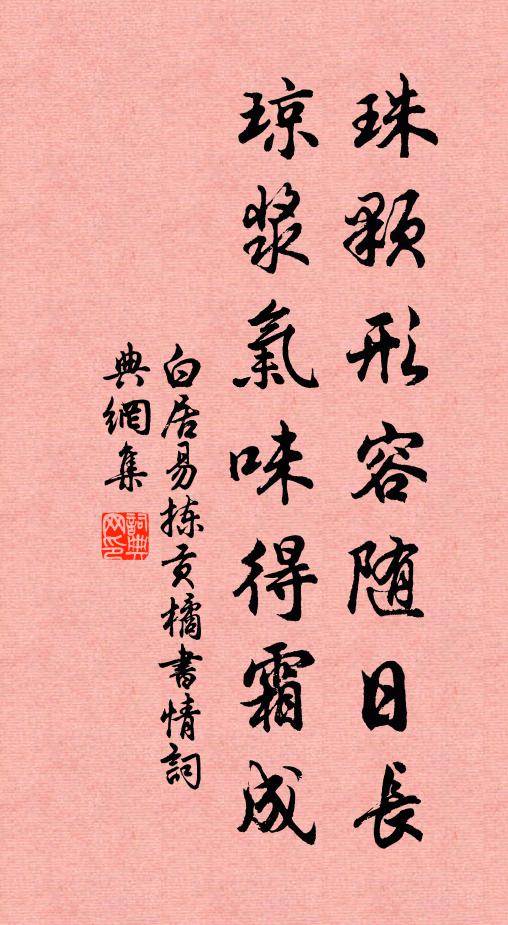 珠顆形容随日長
琼漿氣味得霜成
白居易拣贡橘書情詞
典網集
詞典网印